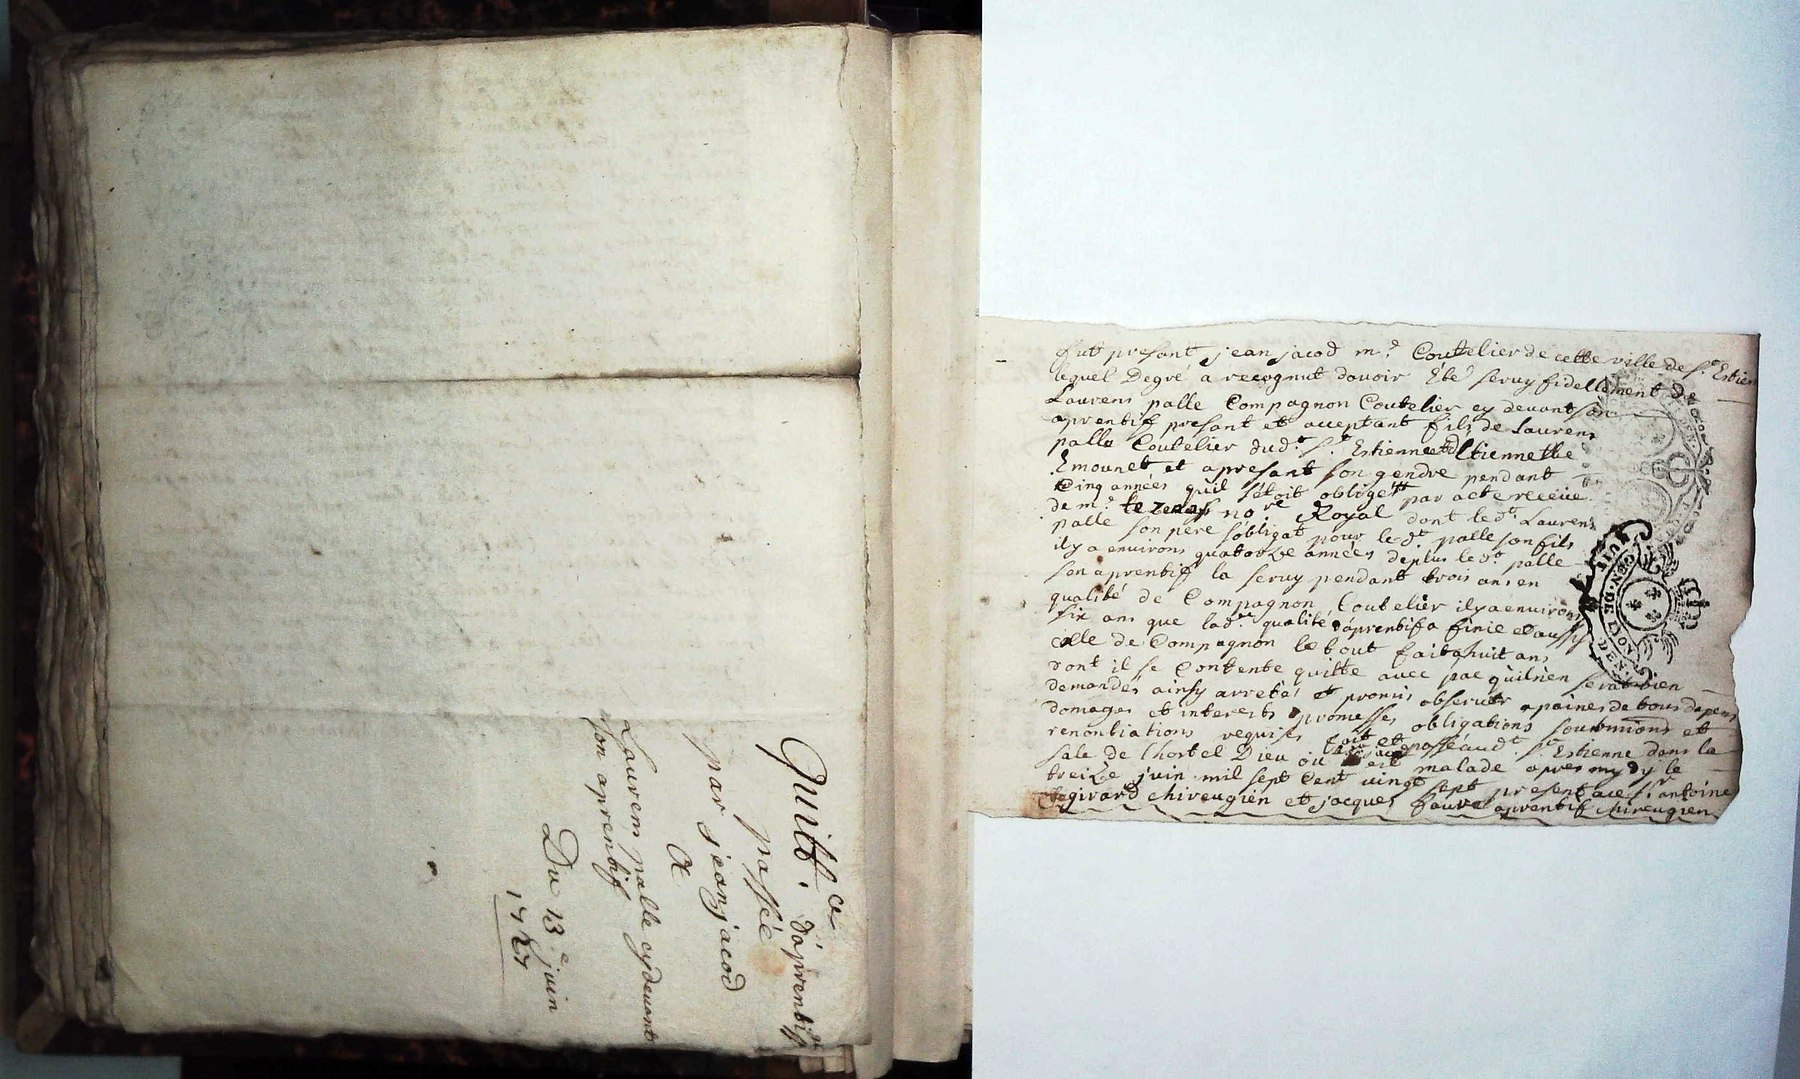 Quitt.ce d'aprentif
passée
par jean jacod
A
Laurens palle cy devant
son aprentif
Du 13.e juin
1727
fut presant jean jacod m.e Coutelier de cette ville de s.t Estien
lequel Degré a recognut davoir Eté servy fidellement de
Laurens palle Compagnon Coutelier cy devant son
aprentif presant et acceptant fils de Laurens
palle Coutelier dud.t s.t Estienne et d'Etiennette
Emounet et apresant son gendre pendant
Cinq années quil s'étoit obligé par acte receüe
de m.e tezenas no.re Royal dont led.t Laurens
palle son père s'obligat pour le d.t palle son fils
il y a environs quatorze années deplus le d.t palle
son aprentif la servy pendant trois ans en
qualité de Compagnon Coutelier il y a environs
six ans que lad.te qualité d'aprentif a finie et aussy
celle de Compagnon le tout fait a huit ans
dont il se Contente quitte avec pac quil n'en serat rien
demandés ainsy arretés et promis observer a paines de tous depens
domages et interests promesses obligations soumissions et
renontiations requises fait et passé aud.t s.t Estienne dans la
sale de l'hostel Dieu ou est malade apres my dy le
treize juin mil sept Cent vingt sept present ace s.r antoine
girard chireugien et jacques faure aprentif chireugien
GEN. DE LYON
HUIT DEN.